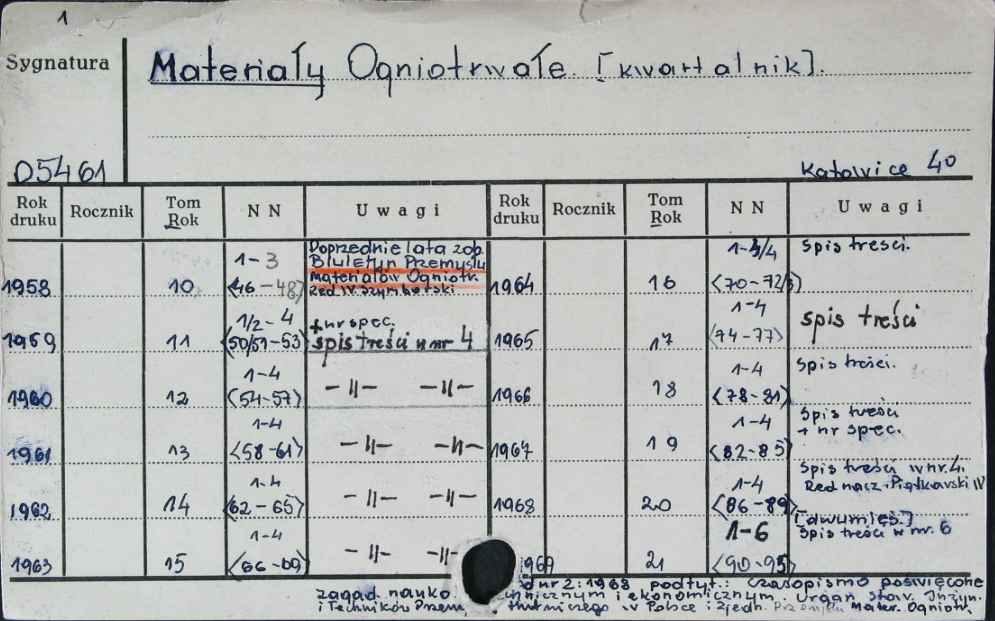 1
Sygnatura
Materiały Ogniotrwałe [kwartalnik].
D5461
Katowice 40
Rok druku Rocznik Tom Rok NN Uwagi Rok druku Rocznik Tom Rok NN Uwagi
Poprzednie lata zob.
Biuletyn Przemysłu
Materiałów Ogniotr.
Red. W. Szymborski
1958 10 1-3 <46-48>
1964 16 1-3/4 <70-72/3> Spis treści.
1959 11 1/2-4 <50/51-53> + nr spec. spis treści w nr 4
1965 17 1-4 <74-77> spis treści
1960 12 1-4 <54-57> -"- -"-
1966 18 1-4 <78-81> Spis treści.
1961 13 1-4 <58-61> -"- -"-
1967 19 1-4 <82-85> Spis treści + nr spec.
1962 14 1-4 <62-65> -"- -"-
1968 20 1-4 <86-89> Spis treści w nr. 4. Red. nacz. Piątkowski W
1963 15 1-4 <66-69> -"- -"-
1969 21 1-6 <90-95> [dwumies.] Spis treści w nr. 6
od nr 2:1968 podtyt.: Czasopismo poświęcone
zagad. nauko technicznym i ekonomicznym. Organ Stow. Inżyn.
i Techników Przem hutniczego w Polsce i Zjedn. Przemysłu Mater. Ogniotr.